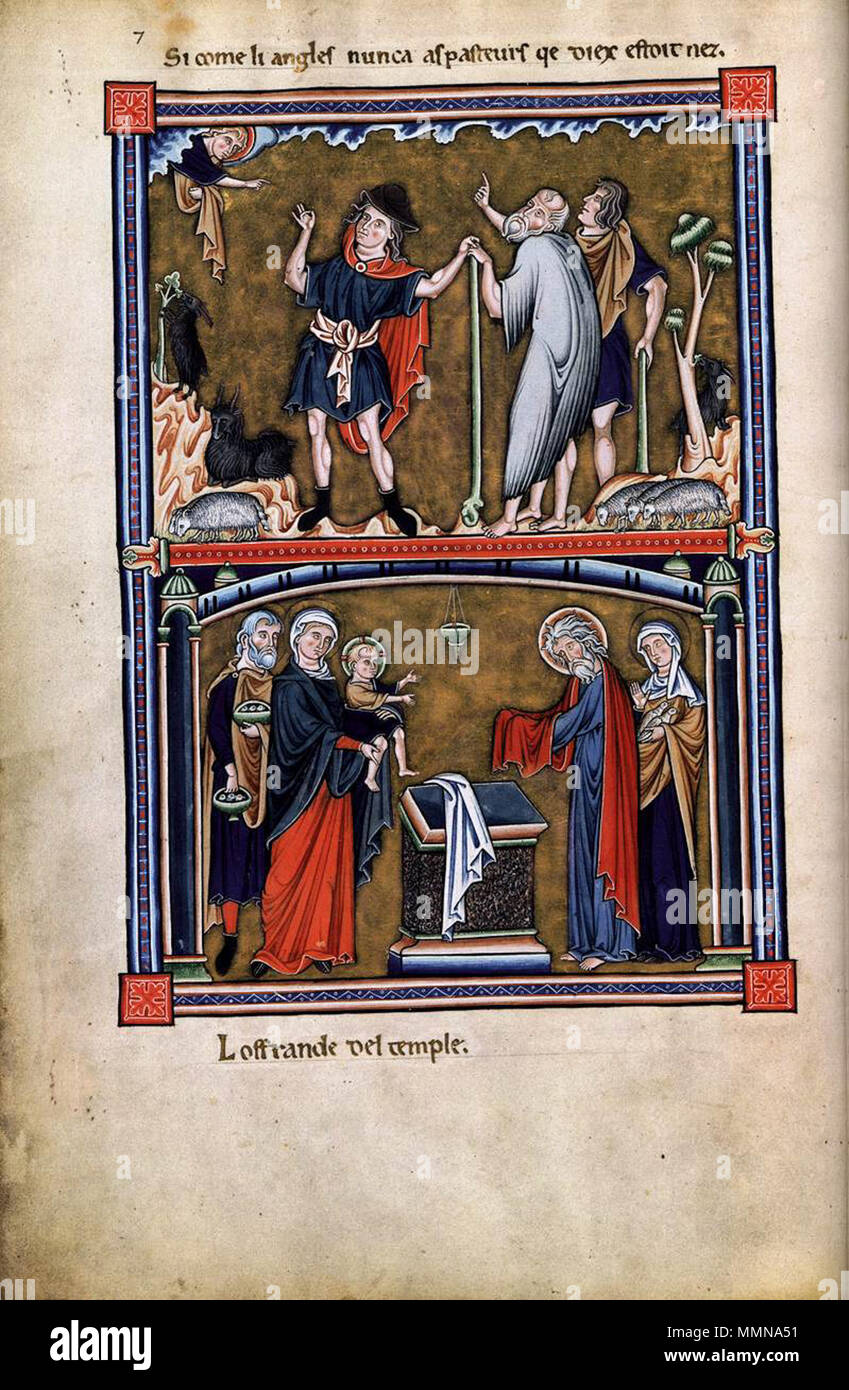 7
Si come li angles nunca as pasteurs qe diex estoit nez.
L offrande del temple.
alamy
alamy
Image ID: MMNA51
www.alamy.com